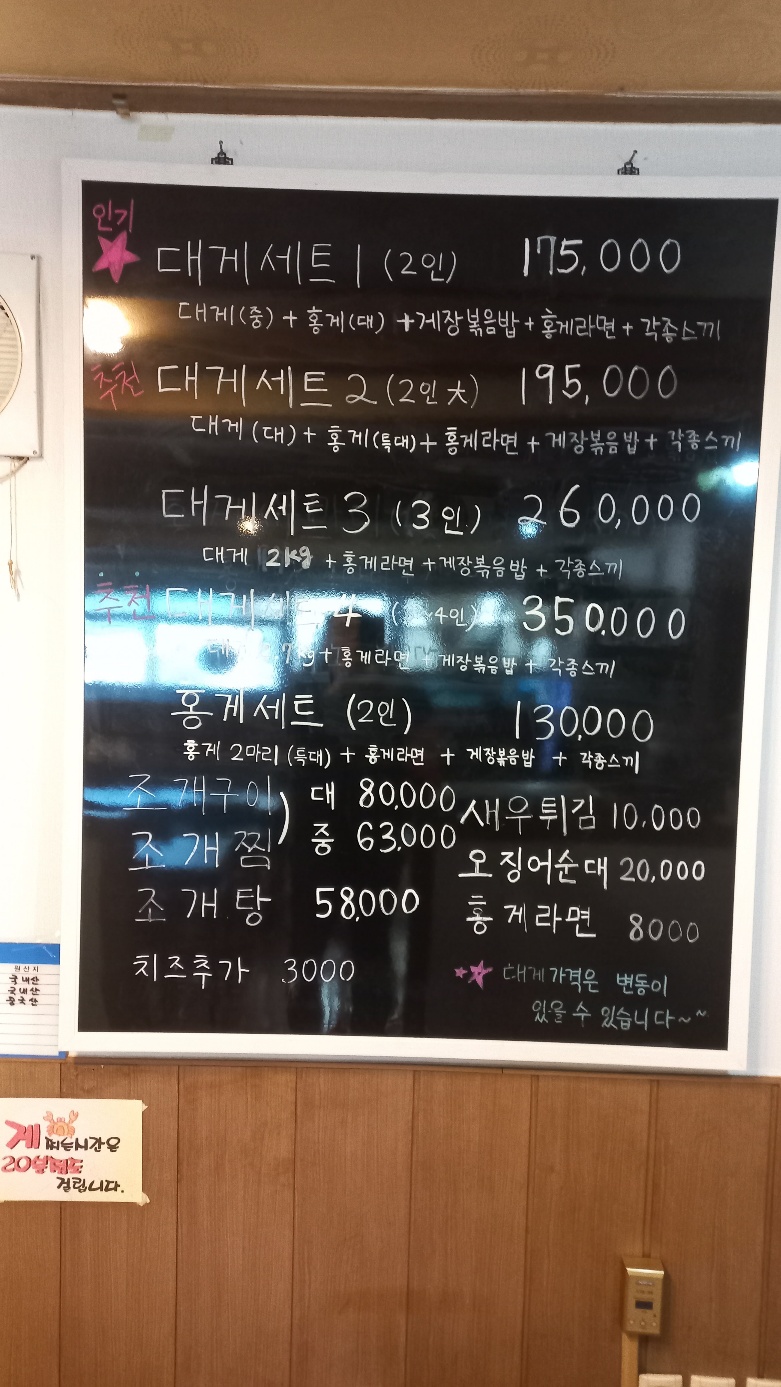 인기
대게세트 1 (2인) 175,000
대게(중) + 홍게(대) + 게장볶음밥 + 홍게라면 + 각종스끼
추천 대게세트 2 (2인 大) 195,000
대게 (대) + 홍게(특대) + 홍게라면 + 게장볶음밥 + 각종스끼
대게세트 3 (3인) 260,000
대게 2kg + 홍게라면 + 게장볶음밥 + 각종스끼
추천 대게세트 4 ~4인) 350,000
kg + 홍게라면 + 게장볶음밥 + 각종스끼
홍게세트 (2인) 130,000
홍게 2마리 (특대) + 홍게라면 + 게장볶음밥 + 각종스끼
조개구이 대 80,000
조개찜 중 63,000
조개탕 58,000
치즈추가 3000
새우튀김 10,000
오징어순대 20,000
홍게라면 8000
대게가격은 변동이
있을 수 있습니다~~
원산지
국내산
국내산
중국산
게 찌는시간은
20분정도
걸립니다.